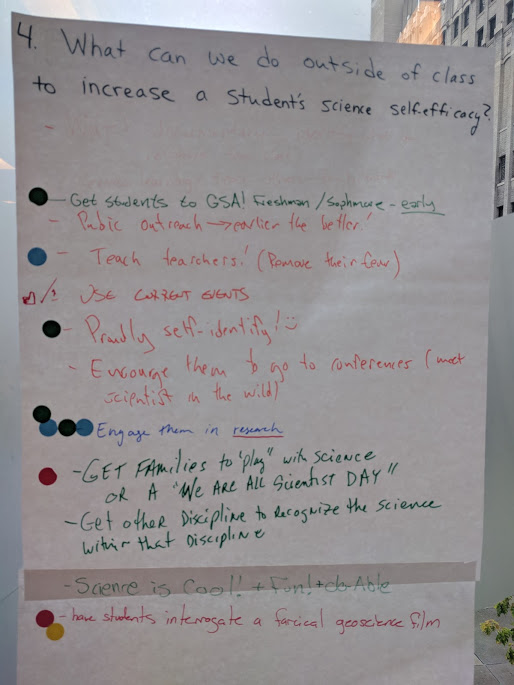 4. What can we do outside of class
to increase a student's science self-efficacy?
- Get students to GSA! Freshman/Sophmore - early
- Pubic outreach → earlier the better!
- Teach tearchers! (Remove their fear)
USE CURRENT EVENTS
- Proudly self-identify! :)
- Encourage them to go to conferences (meet
scientist in the wild)
Engage them in research
- GET FAMilies to "play" with science
OR A "WE ARE ALL Scientist DAY"
- Get other Discipline to Recognize the Science
within that Discipline
- Science is Cool! + Fun! + do-Able
- have students interrogate a farcical geoscience film